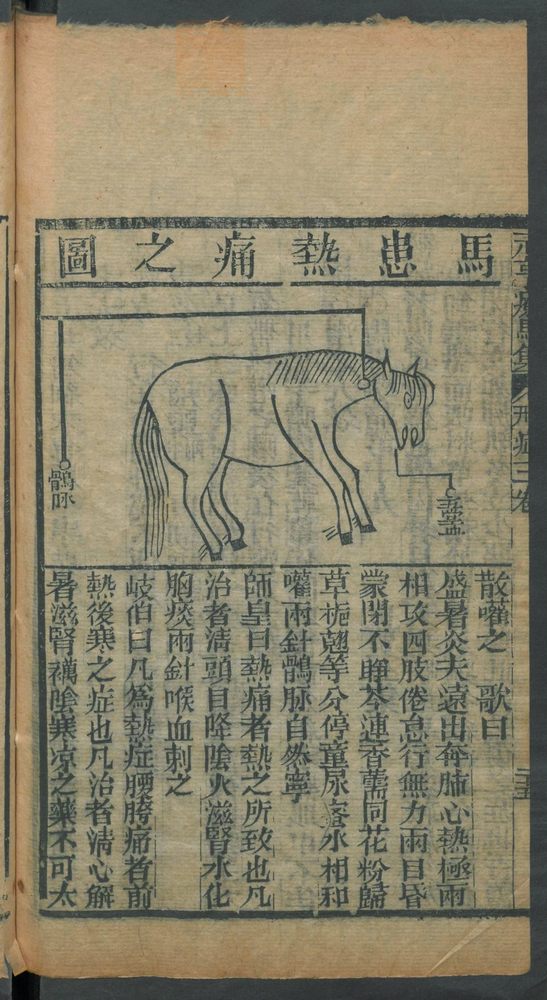 馬患熱痛之圖
鶻脉
韲
散嚾之　歌曰
盛暑炎天遠出奔肺心熱極兩
相攻四肢倦怠行無力兩目昏
蒙閉不睜芩連香薷同花粉歸
草梔翹等分停童尿虀水相和
嚾兩針鶻脉自然寧
師皇曰熱痛者熱之所致也凡
治者清頭目降隂火滋腎水化
胸痰兩針喉血刺之
岐伯曰凡爲熱症腰胯痛者前
熱後寒之症也凡治者清心解
暑滋腎禳隂寒凉之藥不可太
療馬集　八形症三卷
二十五